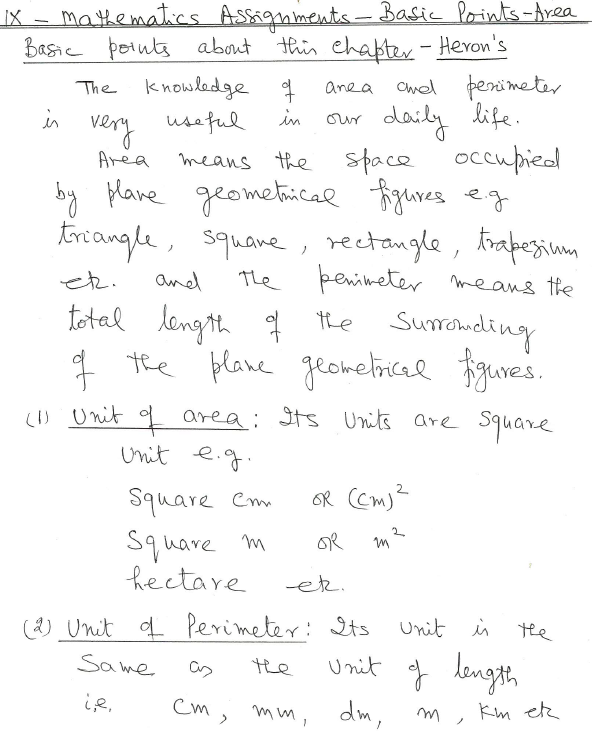 IX - Mathematics Assignments - Basic Points - Area
Basic points about this chapter - Heron's
The knowledge of area and perimeter
is very useful in our daily life.
Area means the space occupied
by plane geometrical figures e.g
triangle, square, rectangle, trapezium
etc. and the perimeter means the
total length of the surrounding
of the plane geometrical figures.
(1) Unit of area: Its Units are square
Unit e.g.
Square cm OR (cm)²
Square m OR m²
hectare etc.
(2) Unit of Perimeter: Its Unit is the
Same as the Unit of length
i.e. cm, mm, dm, m, km etc